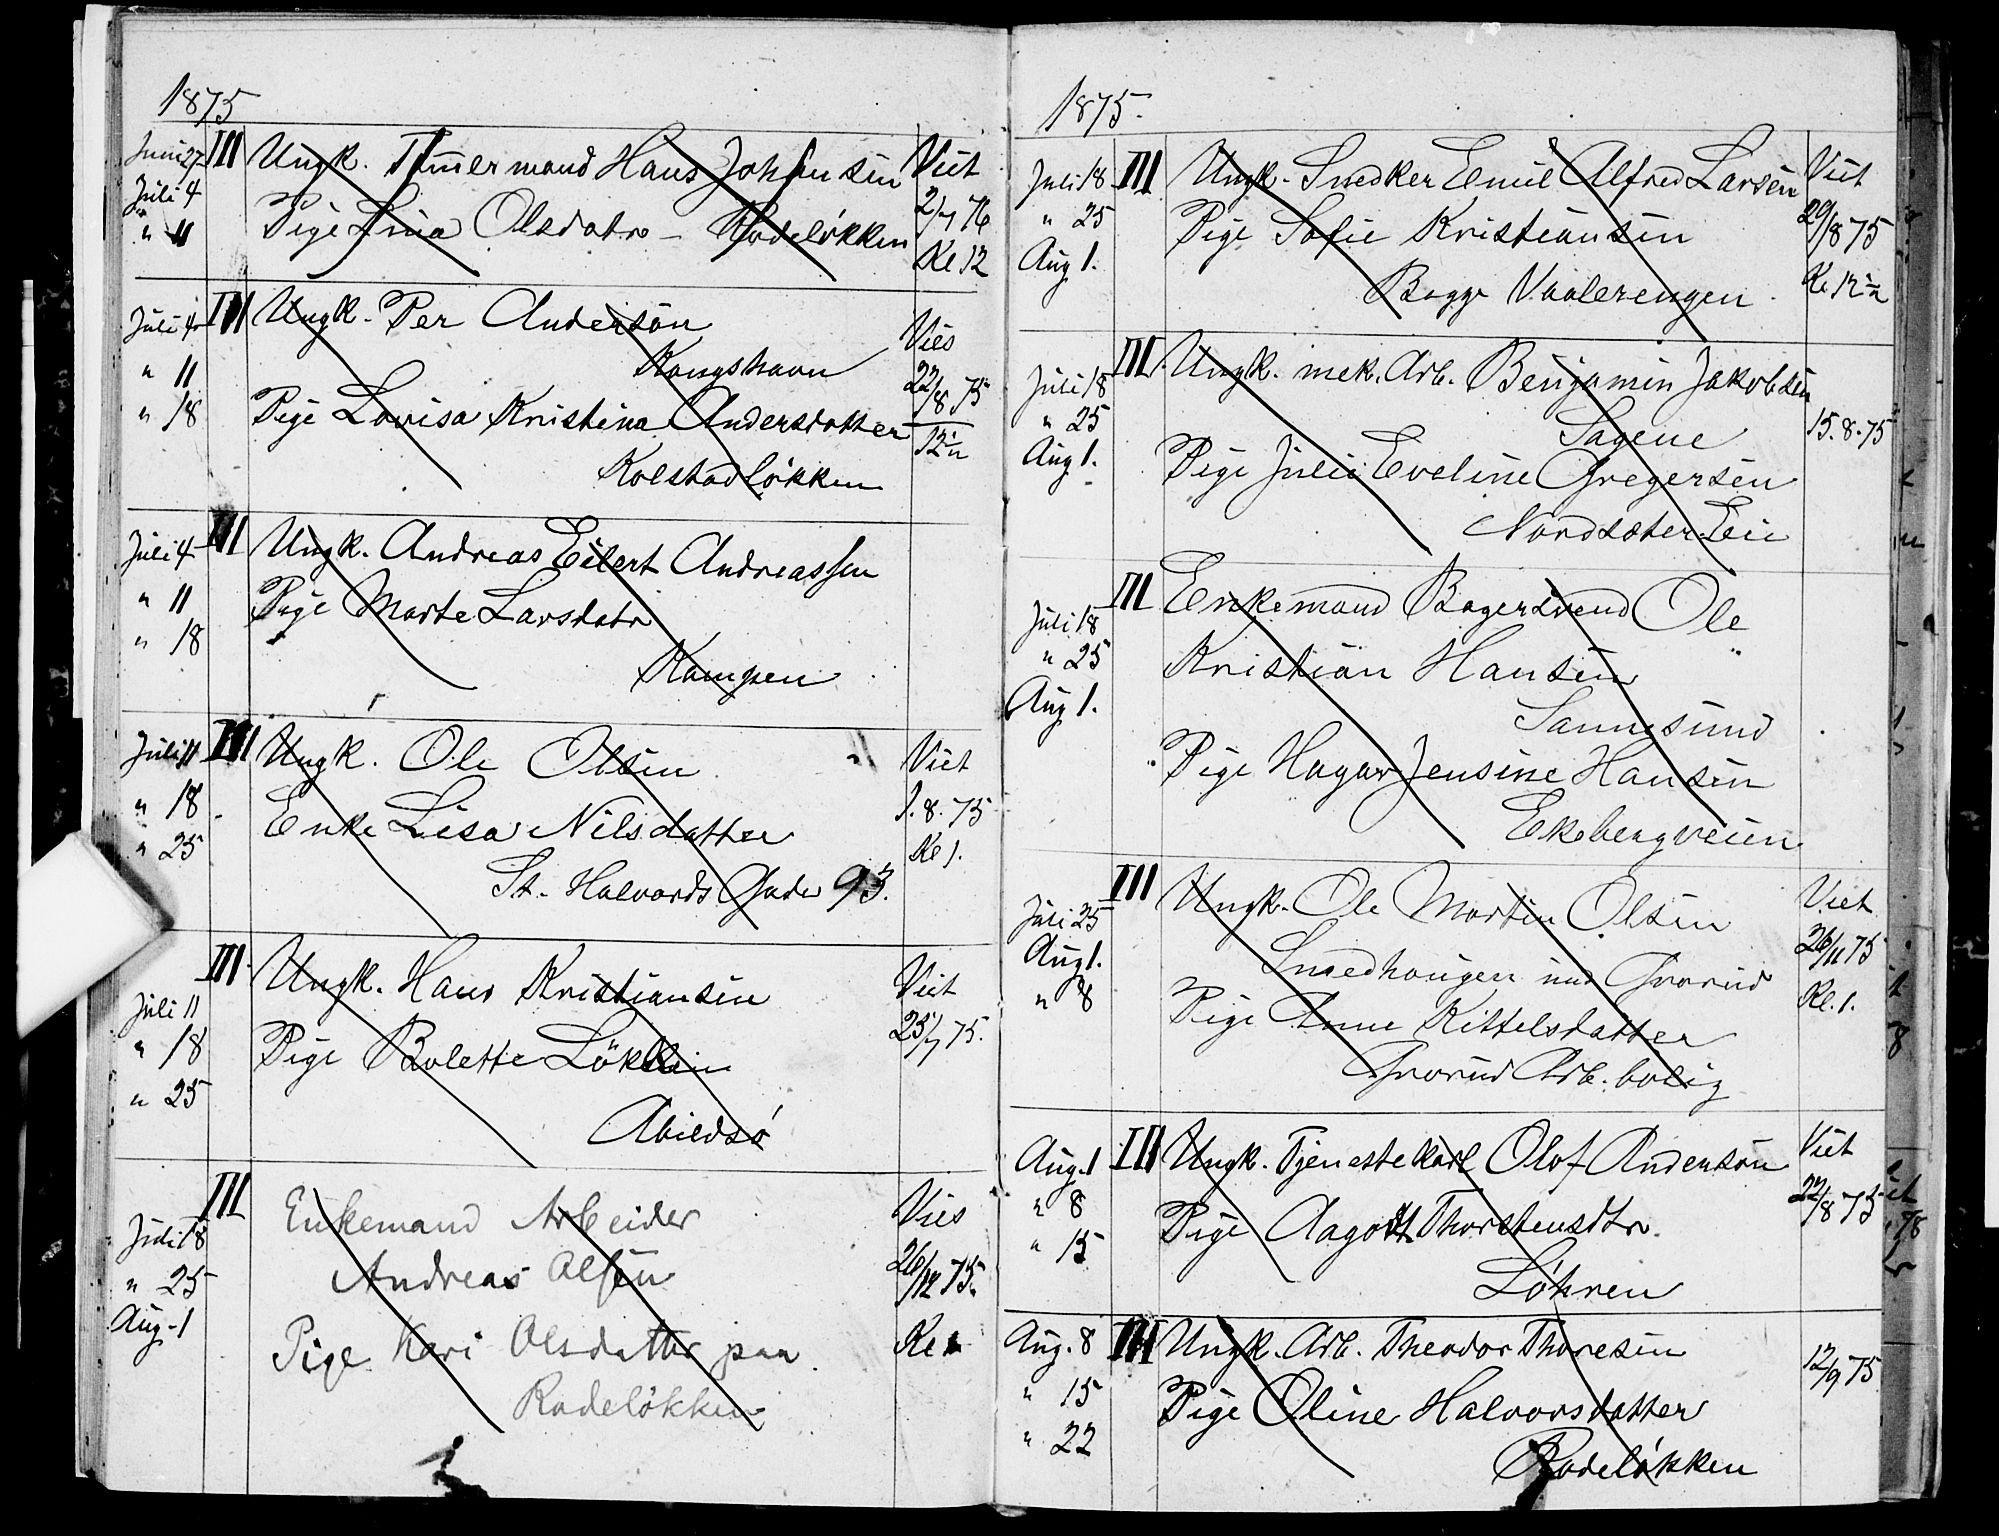 1875
Juni 27 III Ungk. Tømmermand Hans Johansen Viet
Juli 4 Pige Lina Olsdatr - Rodeløkken 2/7 76
" 11 Kl 12
Juli 4 III Ungk. Per Anderson Vies
" 11 Kongshavn 22/8 75
" 18 Pige Lovisa Kristina Andersdatter 12½
Kolstadløkken
Juli 4 III Ungk. Andreas Eilert Andreassen
" 11 Pige Marte Larsdatr
" 18 Kampen
Juli 11 III Ungk. Ole Olsen Viet
" 18 Enke Lisa Nilsdatter 1.8.75
" 25 St. Halvards Gade 93. Kl 1.
Juli 11 III Ungk. Hans Kristiansen Viet
" 18 Pige Bolette Løkken 25/7 75.
" 25 Abildsø
Juli 18 III Enkemand Arbeider Vies
" 25 Andreas Olsen 26/12 75.
Aug. 1 Pige Kari Olsdatter paa Kl 1
Rodeløkken
1875.
Juli 18 III Ungk. Snedker Emil Alfred Larsen Viet
" 25 Pige Sofie Kristiansen 29/8 75
Aug 1. Bagge Vaalerengen. Kl 12½
Juli 18 III Ungk. mek. Arb. Benjamin Jakobsen
" 25 Sagene 15.8.75
Aug 1. Pige Julie Eveline Gregersen
Nordsæter Eie
Juli 18 III Enkemand Bagersvend Ole
" 25 Kristian Hansen
Aug 1. Sannesund
Pige Hagar Jensine Hansen
Ekebergveien
Juli 25 III Ungk. Ole Martin Olsen Viet
Aug 1. Smedhaugen und Grorud 26/11 75
" 8 Pige Anne Kittelsdatter Kl. 1.
Grorud Arb. bolig
Aug. 1 III Ungk. Tjenestekarl Olof Anderson Viet
" 8 Pige Aagott Thorstensdtr. 22/8 75
" 15 Løhren
Aug. 8 III Ungk. Arb. Theodor Thoresen 12/9 75
" 15 Pige Oline Halvorsdatter
" 22 Rodeløkken